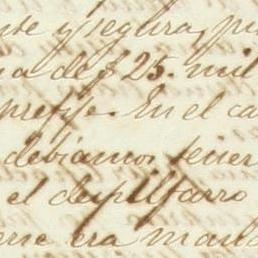 y segura, pu
a de $ 25. mil
prefije. En el ca
debiamos tener
el despilfarro
era man